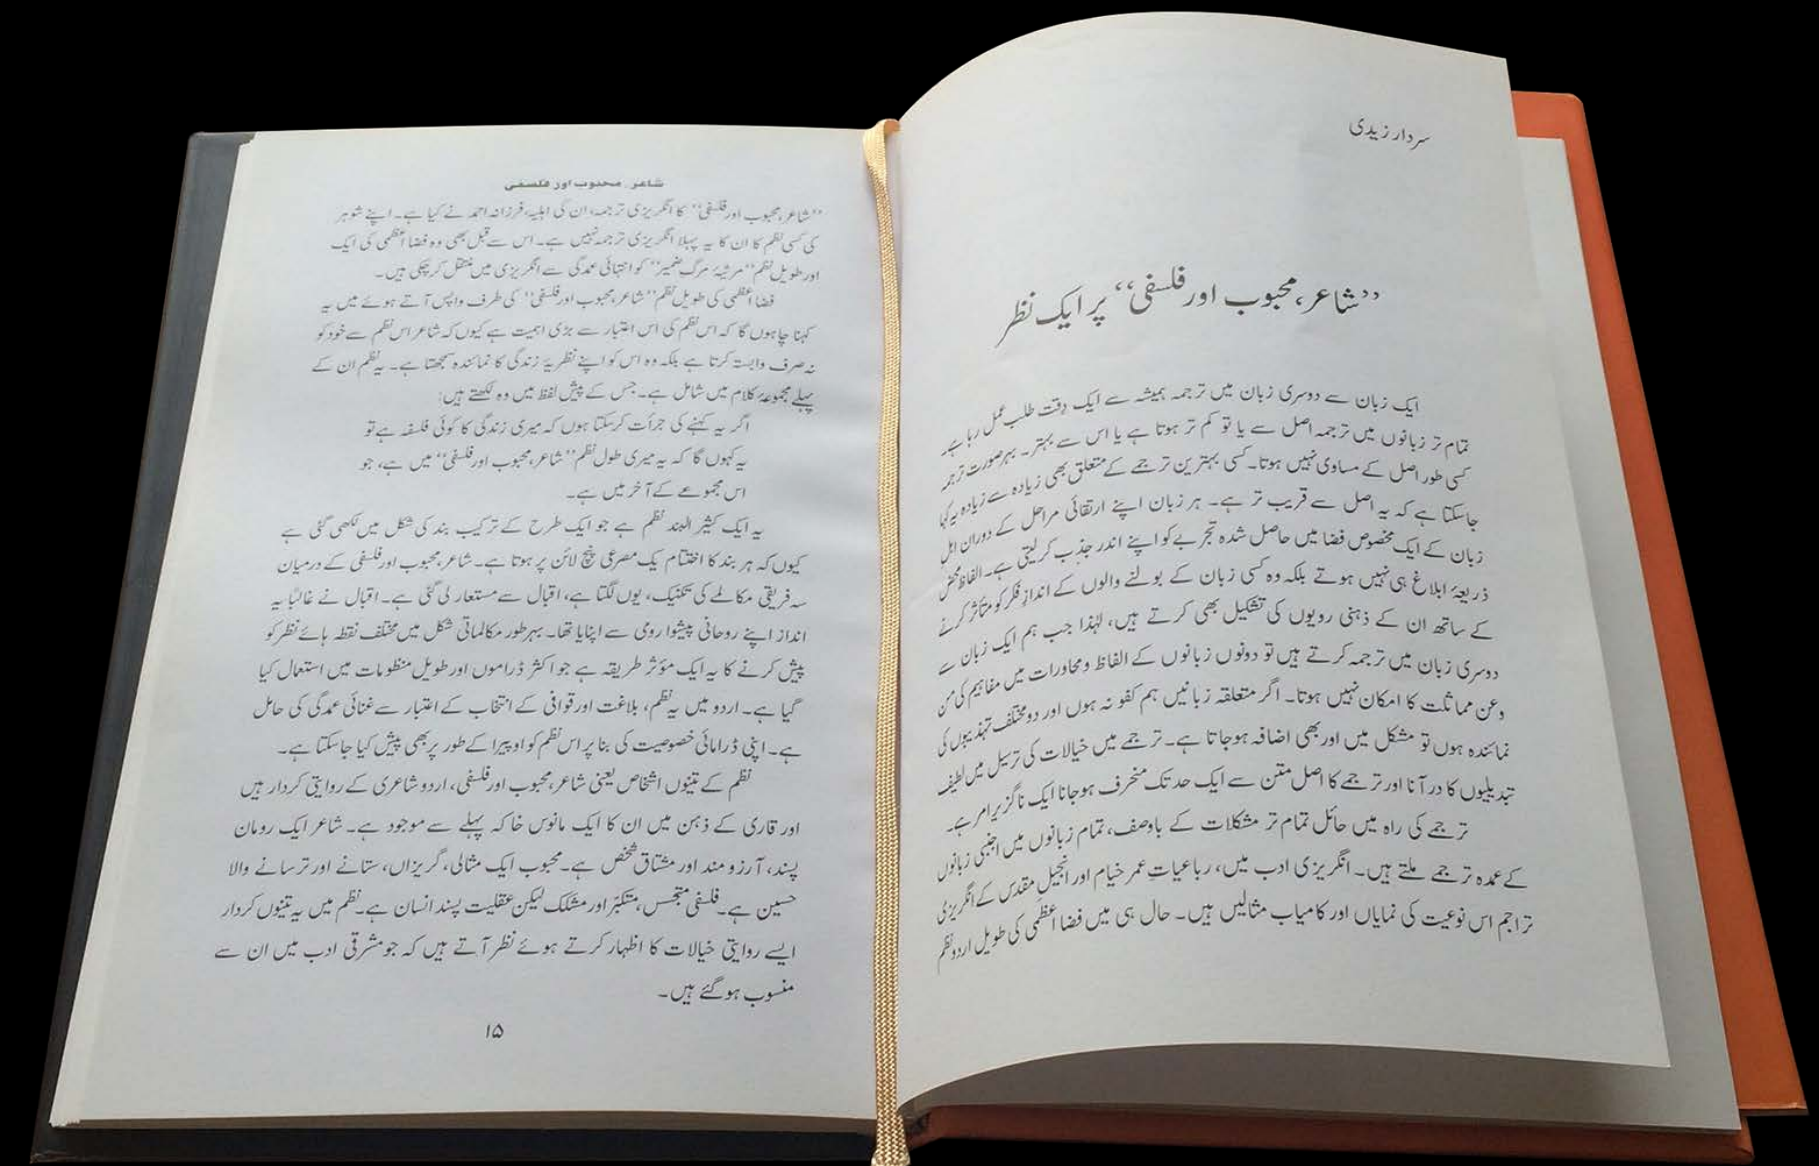 سردار زیدی
’’شاعر، محبوب اور فلسفی‘‘ پر ایک نظر
ایک زبان سے دوسری زبان میں ترجمہ ہمیشہ سے ایک دِقت طلب عمل رہا ہے۔
تمام تر زبانوں میں ترجمہ اصل سے یا تو کم تر ہوتا ہے یا اس سے بہتر۔ بہرصورت ترجمہ
کسی طور اصل کے مساوی نہیں ہوتا۔ کسی بہترین ترجمے کے متعلق بھی زیادہ سے زیادہ یہ کہا
جاسکتا ہے کہ یہ اصل سے قریب تر ہے۔ ہر زبان اپنے ارتقائی مراحل کے دوران اہلِ
زبان کے ایک مخصوص فضا میں حاصل شدہ تجربے کو اپنے اندر جذب کرلیتی ہے۔ الفاظ محض
ذریعۂ ابلاغ ہی نہیں ہوتے بلکہ وہ کسی زبان کے بولنے والوں کے اندازِ فکر کو متأثر کرنے
کے ساتھ ان کے ذہنی رویوں کی تشکیل بھی کرتے ہیں، لہٰذا جب ہم ایک زبان سے
دوسری زبان میں ترجمہ کرتے ہیں تو دونوں زبانوں کے الفاظ و محاورات میں مفاہیم کی من
وعن مماثلت کا امکان نہیں ہوتا۔ اگر متعلقہ زبانیں ہم کفو نہ ہوں اور دو مختلف تہذیبوں کی
نمائندہ ہوں تو مشکل میں اور بھی اضافہ ہوجاتا ہے۔ ترجمے میں خیالات کی ترسیل میں لطیف
تبدیلیوں کا در آنا اور ترجمے کا اصل متن سے ایک حد تک منحرف ہوجانا ایک ناگزیر امر ہے۔
ترجمے کی راہ میں حائل تمام تر مشکلات کے باوصف، تمام زبانوں میں اجنبی زبانوں
کے عمدہ ترجمے ملتے ہیں۔ انگریزی ادب میں، رباعیاتِ عمر خیام اور انجیلِ مقدس کے انگریزی
تراجم اس نوعیت کی نمایاں اور کامیاب مثالیں ہیں۔ حال ہی میں فضا اعظمی کی طویل اردو نظم
شاعر، محبوب اور فلسفی
’’شاعر، محبوب اور فلسفی‘‘ کا انگریزی ترجمہ، ان کی اہلیہ، فرزانہ احمد نے کیا ہے۔ اپنے شوہر
کی کسی نظم کا ان کا یہ پہلا انگریزی ترجمہ نہیں ہے۔ اس سے قبل بھی وہ فضا اعظمی کی ایک
اور طویل نظم ’’مرثیۂ مرگِ ضمیر‘‘ کو انتہائی عمدگی سے انگریزی میں منتقل کرچکی ہیں۔
فضا اعظمی کی طویل نظم ’’شاعر، محبوب اور فلسفی‘‘ کی طرف واپس آتے ہوئے میں یہ
کہنا چاہوں گا کہ اس نظم کی اس اعتبار سے بڑی اہمیت ہے کیوں کہ شاعر اس نظم سے خود کو
نہ صرف وابستہ کرتا ہے بلکہ وہ اس کو اپنے نظریۂ زندگی کا نمائندہ سمجھتا ہے۔ یہ نظم ان کے
پہلے مجموعۂ کلام میں شامل ہے۔ جس کے پیش لفظ میں وہ لکھتے ہیں:
اگر یہ کہنے کی جرأت کرسکتا ہوں کہ میری زندگی کا کوئی فلسفہ ہے تو
یہ کہوں گا کہ یہ میری طول نظم ’’شاعر، محبوب اور فلسفی‘‘ میں ہے، جو
اس مجموعے کے آخر میں ہے۔
یہ ایک کثیر البند نظم ہے جو ایک طرح کے ترکیب بند کی شکل میں لکھی گئی ہے
کیوں کہ ہر بند کا اختتام یک مصرعی پنچ لائن پر ہوتا ہے۔ شاعر، محبوب اور فلسفی کے درمیان
سہ فریقی مکالمے کی تکنیک، یوں لگتا ہے، اقبال سے مستعار لی گئی ہے۔ اقبال نے غالباً یہ
انداز اپنے روحانی پیشوا رومی سے اپنایا تھا۔ بہرطور مکالماتی شکل میں مختلف نقطہ ہائے نظر کو
پیش کرنے کا یہ ایک مؤثر طریقہ ہے جو اکثر ڈراموں اور طویل منظومات میں استعمال کیا
گیا ہے۔ اردو میں یہ نظم، بلاغت اور قوافی کے انتخاب کے اعتبار سے غنائی عمدگی کی حامل
ہے۔ اپنی ڈرامائی خصوصیت کی بنا پر اس نظم کو اوپیرا کے طور پر بھی پیش کیا جاسکتا ہے۔
نظم کے تینوں اشخاص یعنی شاعر، محبوب اور فلسفی، اردو شاعری کے روایتی کردار ہیں
اور قاری کے ذہن میں ان کا ایک مانوس خاکہ پہلے سے موجود ہے۔ شاعر ایک رومان
پسند، آرزو مند اور مشتاق شخص ہے۔ محبوب ایک مثالی، گریزاں، ستانے اور ترسانے والا
حسین ہے۔ فلسفی متجسس، متکبر اور مشکک لیکن عقلیت پسند انسان ہے۔ نظم میں یہ تینوں کردار
ایسے روایتی خیالات کا اظہار کرتے ہوئے نظر آتے ہیں کہ جو مشرقی ادب میں ان سے
منسوب ہوگئے ہیں۔
۱۵